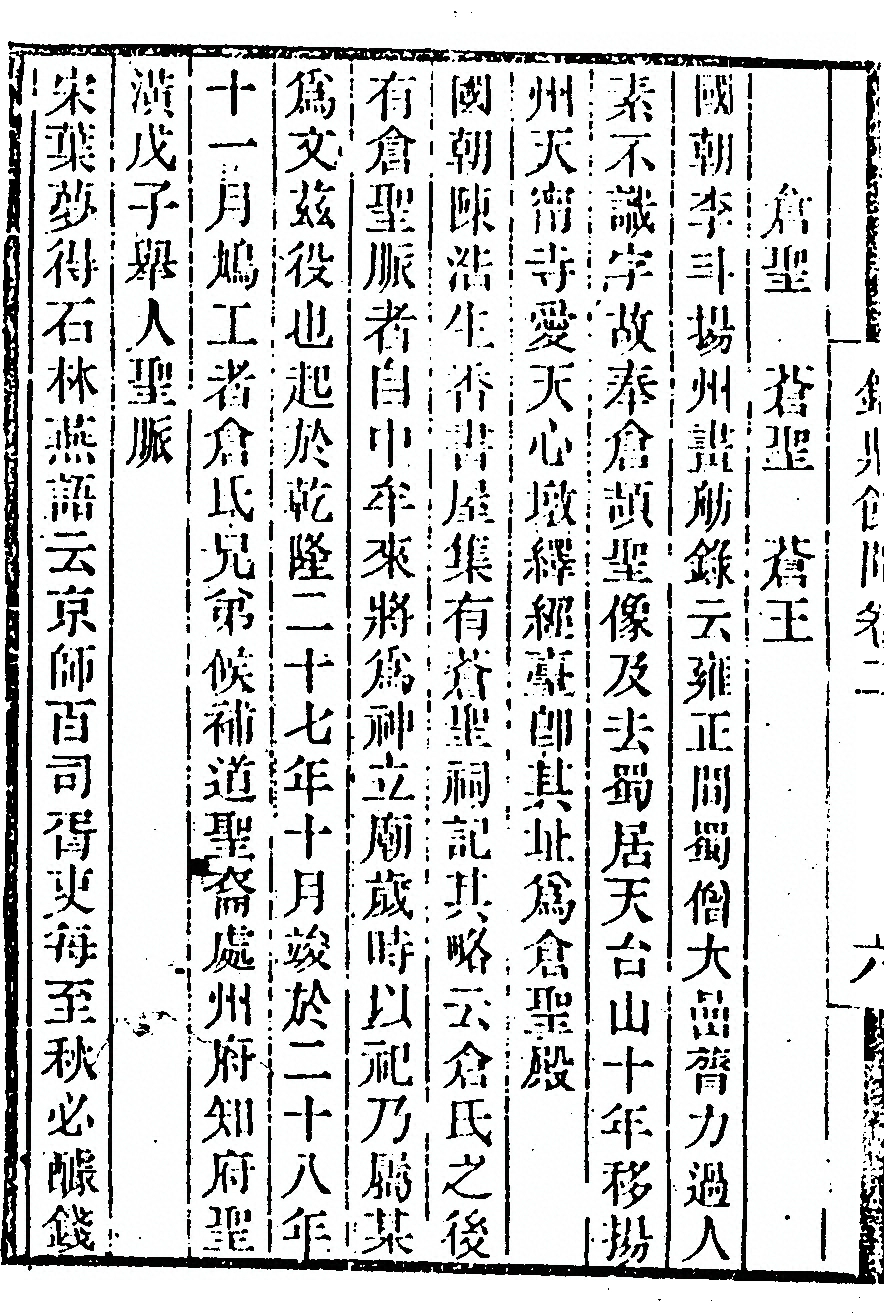 倉聖　蒼聖　蒼王
國朝李斗揚州畫舫錄云雍正間蜀僧大嵒膂力過人
素不識字故奉倉頡聖像及去蜀居天台山十年移揚
州天甯寺愛天心墩繹經臺卽其址爲倉聖殿
國朝陳浩生香書屋集有蒼聖祠記其略云倉氏之後
有倉聖脈者自中牟來將爲神立廟歲時以祀乃屬某
爲文茲役也起於乾隆二十七年十月竣於二十八年
十一月鳩工者倉氏兄弟候補道聖裔處州府知府聖
潢戊子舉人聖脈
宋葉夢得石林燕語云京師百司胥吏每至秋必醵錢
卷二
六